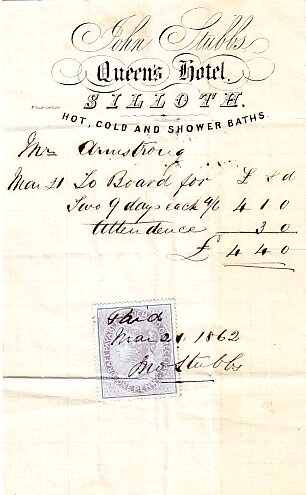 John Stubbs
Queen's Hotel.
SILLOTH.
HOT, COLD AND SHOWER BATHS.
Mr Armstrong
Mar 21 To Board for £ s d
Two 9 days each 4/6 4 1 0
Attendence 3 0
£ 4 4 0
Paid
Mar 21 1862
Jno Stubbs
ONE PENNY